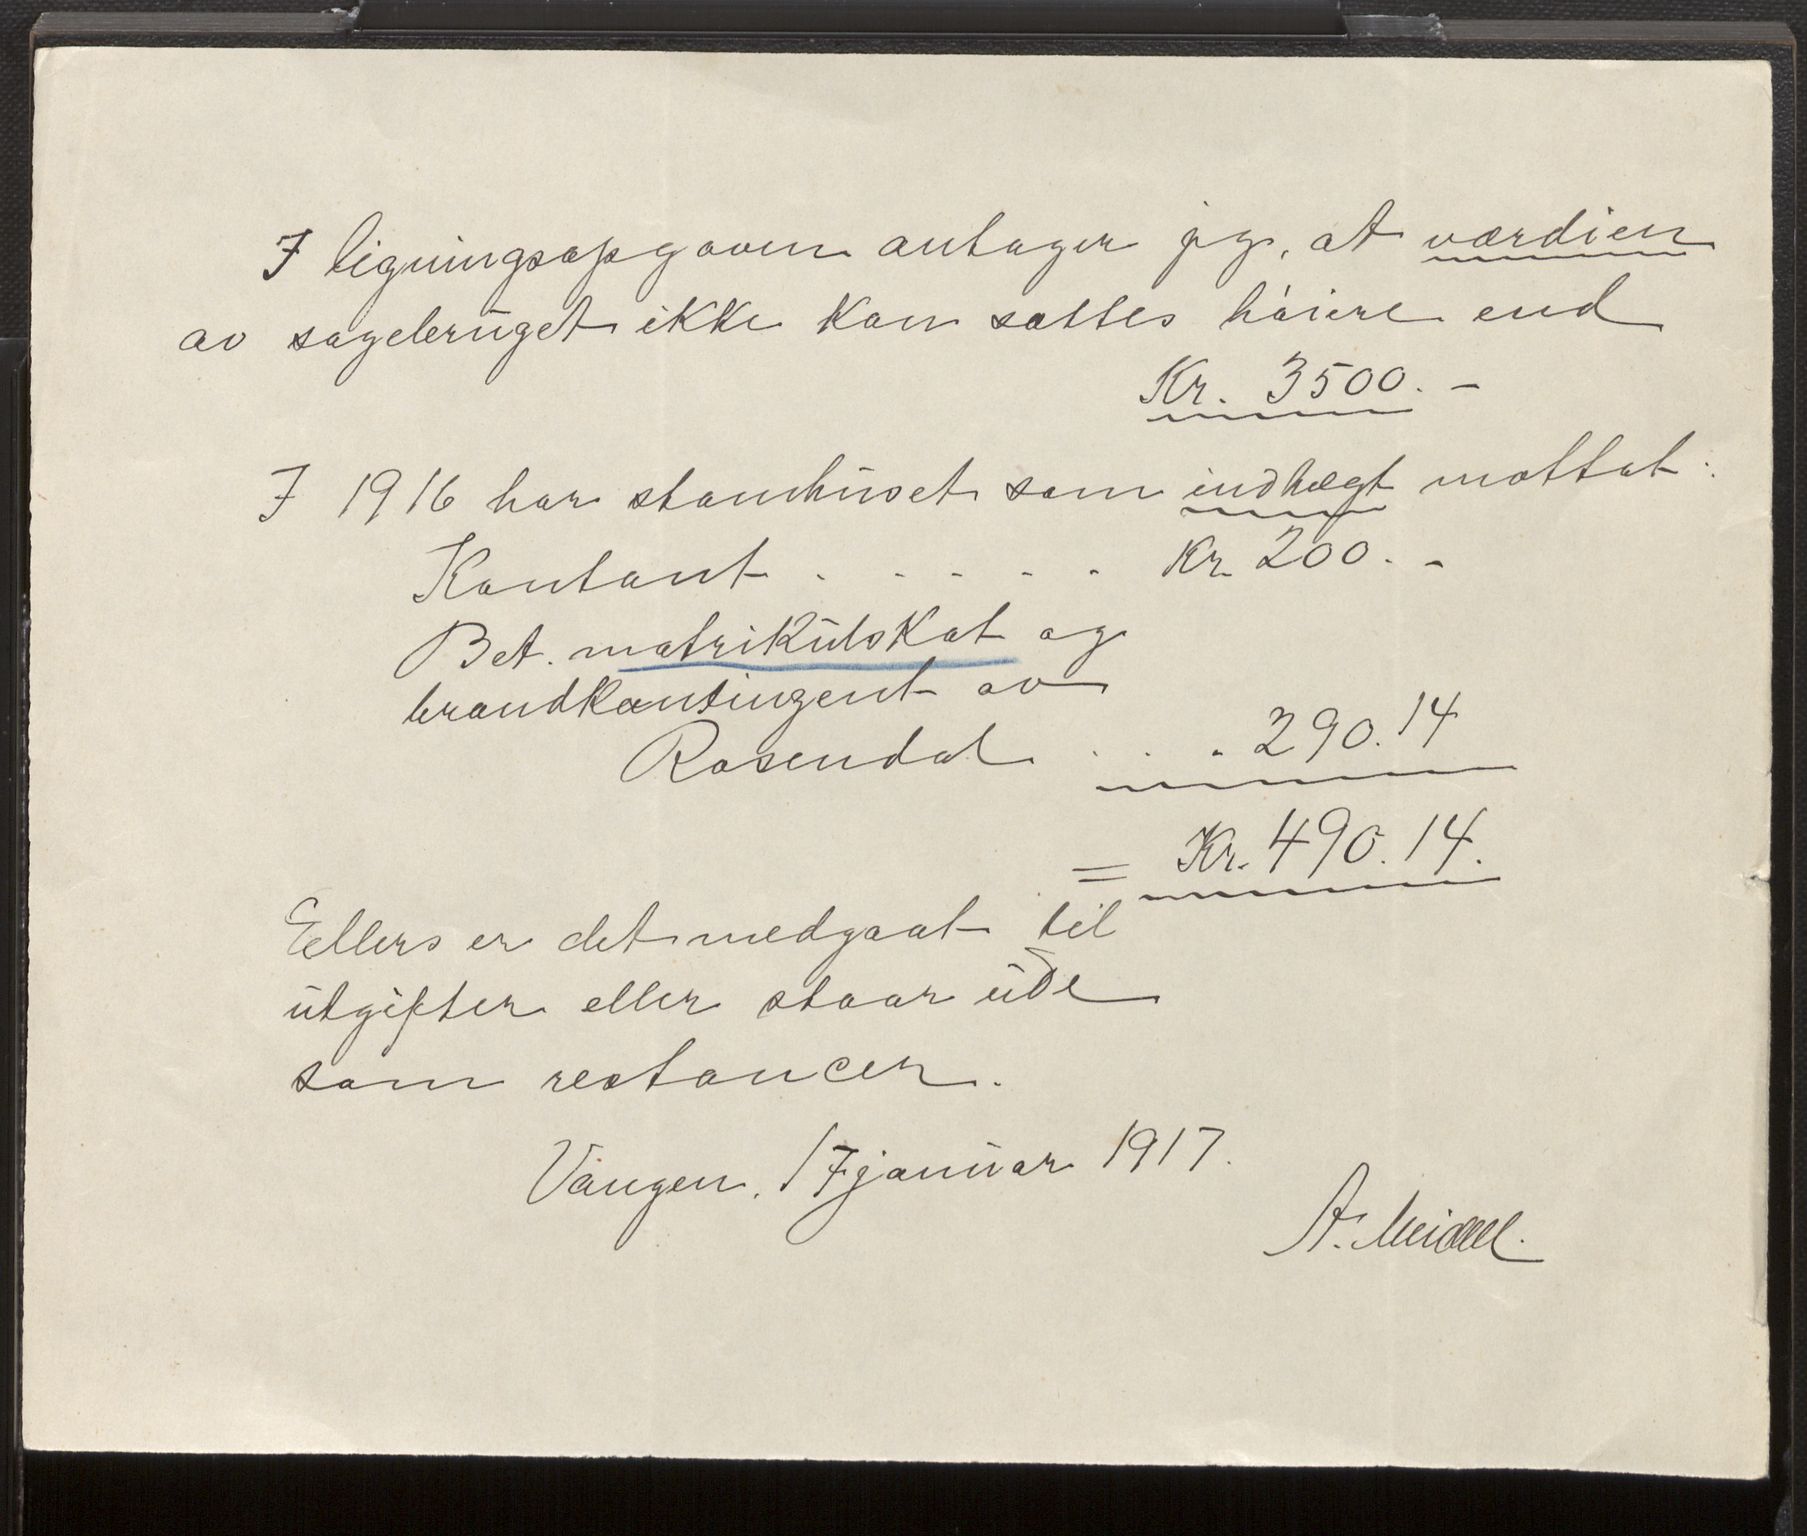 I ligningsopgaven antager jeg, at værdien
av sagebruget ikke kan sættes høiere end
Kr. 3500.-
I 1916 har stamhuset som indtægt mottat:
Kontant . . . . . Kr. 200.-
Bet. matrikulskat og
brandkontingent av
Rosendal . . . 290.14
= Kr. 490.14.
Ellers er det medgaat til
utgifter eller staar ute
som restancer.
Vangen, 17 januar 1917.
A. Meidell.